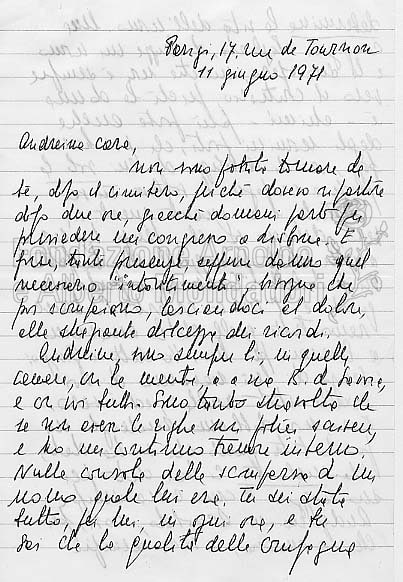 Parigi, 17. rue de Tournon
11 giugno 1971
Andreina cara,
non sono potuta tornare da
te, dopo il cimitero, perché dovevo ripartire
dopo due ore, giacché domani parto per
presiedere un congresso a Lisbona. E
forse, tante presenze, seppure danno quel
necessario "intontimento", bisogna che
poi scompaiono, lasciandoci al dolore,
alla straziante dolcezza dei ricordi.
Andreina, sono sempre lì, in quella
camera, con la mente, o a via B. di Savoia,
e con voi tutti. Sono tanto stravolta che
se non avessi le righe non potrei
e ho un continuo tremore interno.
Nulla consola della scomparsa di un
uomo quale lui era. Tu sei stata
tutto, per lui, in ogni ora, e tu
sai che la qualità della compagna